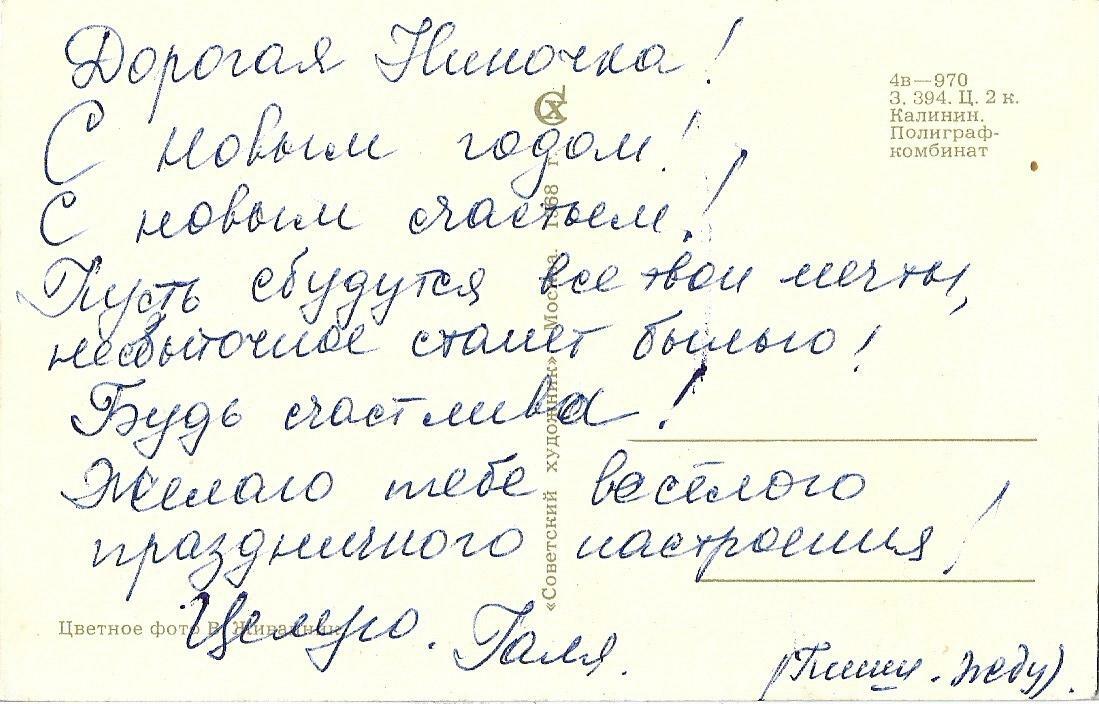 Дорогая Ниночка!
С новым годом!
С новым счастьем!
Пусть сбудутся все твои мечты,
несбыточное станет былью!
Будь счастлива!
Желаю тебе весёлого
праздничного настроения!
Целую. Галя.
(Пиши - жду).
4в—970
З. 394. Ц. 2 к.
Калинин.
Полиграф-
комбинат
«Советский художник» Москва. 1968 г.
Цветное фото В.